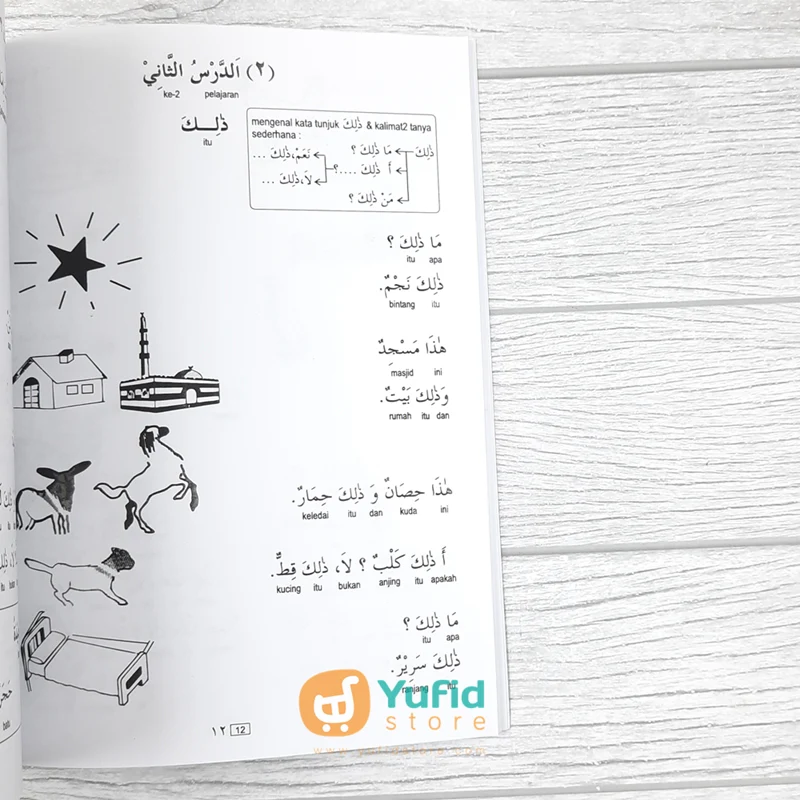 (٢) اَلدَّرْسُ الثَّانِيْ
ke-2 pelajaran
ذٰلِـكَ
itu
mengenal kata tunjuk ذٰلِكَ & kalimat2 tanya
sederhana :
ذٰلِكَ
مَا ذٰلِكَ ؟
أَ ذٰلِكَ ....؟
مَنْ ذٰلِكَ ؟
نَعَمْ،ذٰلِكَ ...
لَا،ذٰلِكَ ...
مَا ذٰلِكَ ؟
itu apa
ذٰلِكَ نَجْمٌ.
bintang itu
هٰذَا مَسْجِدٌ
masjid ini
وَذٰلِكَ بَيْتٌ.
rumah itu dan
هٰذَا حِصَانٌ وَ ذٰلِكَ حِمَارٌ.
keledai itu dan kuda ini
أَ ذٰلِكَ كَلْبٌ ؟ لَا، ذٰلِكَ قِطٌّ.
kucing itu bukan anjing itu apakah
مَا ذٰلِكَ ؟
itu apa
ذٰلِكَ سَرِيْرٌ.
ranjang itu
١٢ 12
Yufid
store